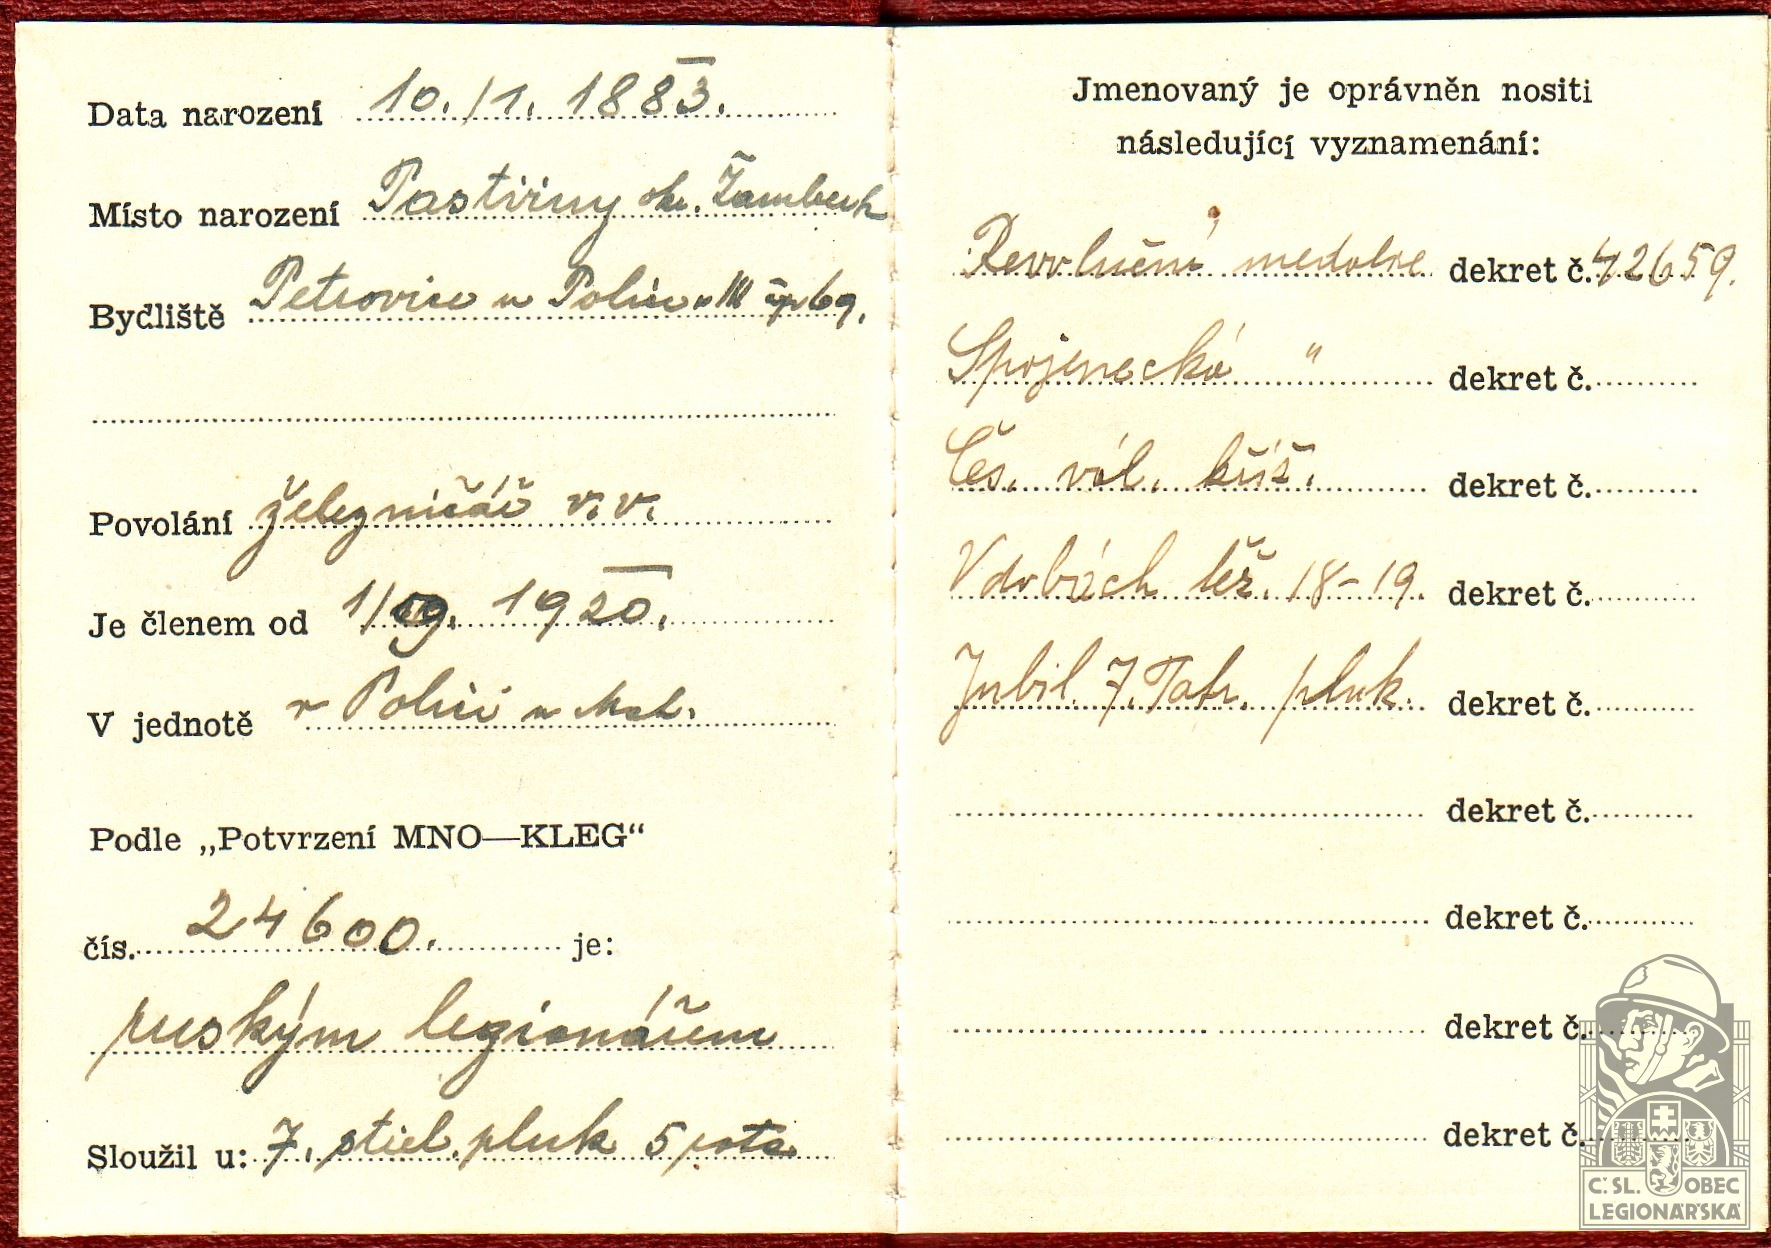 Data narození 10./1. 1883.
Místo narození Pastviny okr. Žamberk
Bydliště Petrovice u Police n/M čp 69.
Povolání železničář v. v.
Je členem od 1/9. 1920.
V jednotě v Polici n Met.
Podle „Potvrzení MNO—KLEG“
čís. 24600. je:
ruským legionářem
Sloužil u: 7. střel. pluk 5 rota
Jmenovaný je oprávněn nositi
následující vyznamenání:
Revoluční medaile dekret č. 42659.
Spojenecká " dekret č.
Čes. vál. kříž. dekret č.
V dobách těž. 18–19. dekret č.
Jubil. 7. Tatr. pluk. dekret č.
dekret č.
dekret č.
dekret č.
dekret č.
Č.SL. OBEC
LEGIONÁŘSKÁ